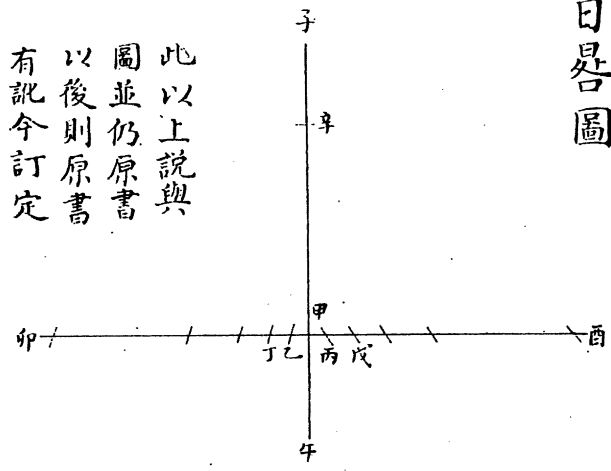 日晷圖
子
辛
甲
卯
丁
乙
丙
戊
酉
午
此以上説與
圖並仍原書
以後則原書
有訛今訂定